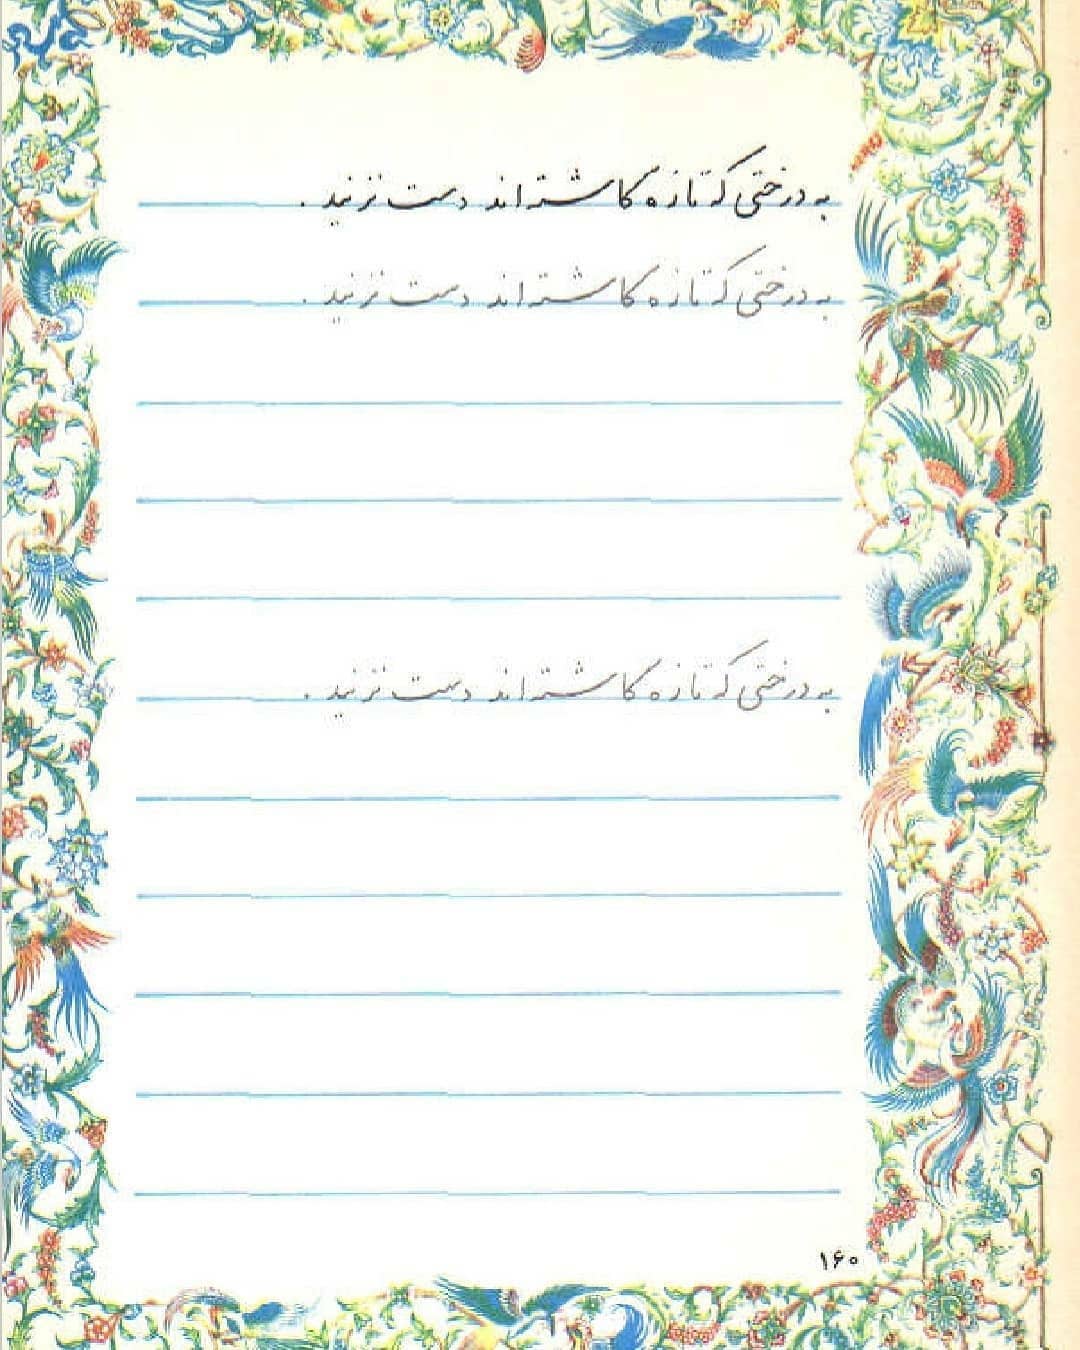 به درختی که تازه کاشته اند دست نزنید .
به درختی که تازه کاشته اند دست نزنید .
به درختی که تازه کاشته اند دست نزنید .
۱۶۰